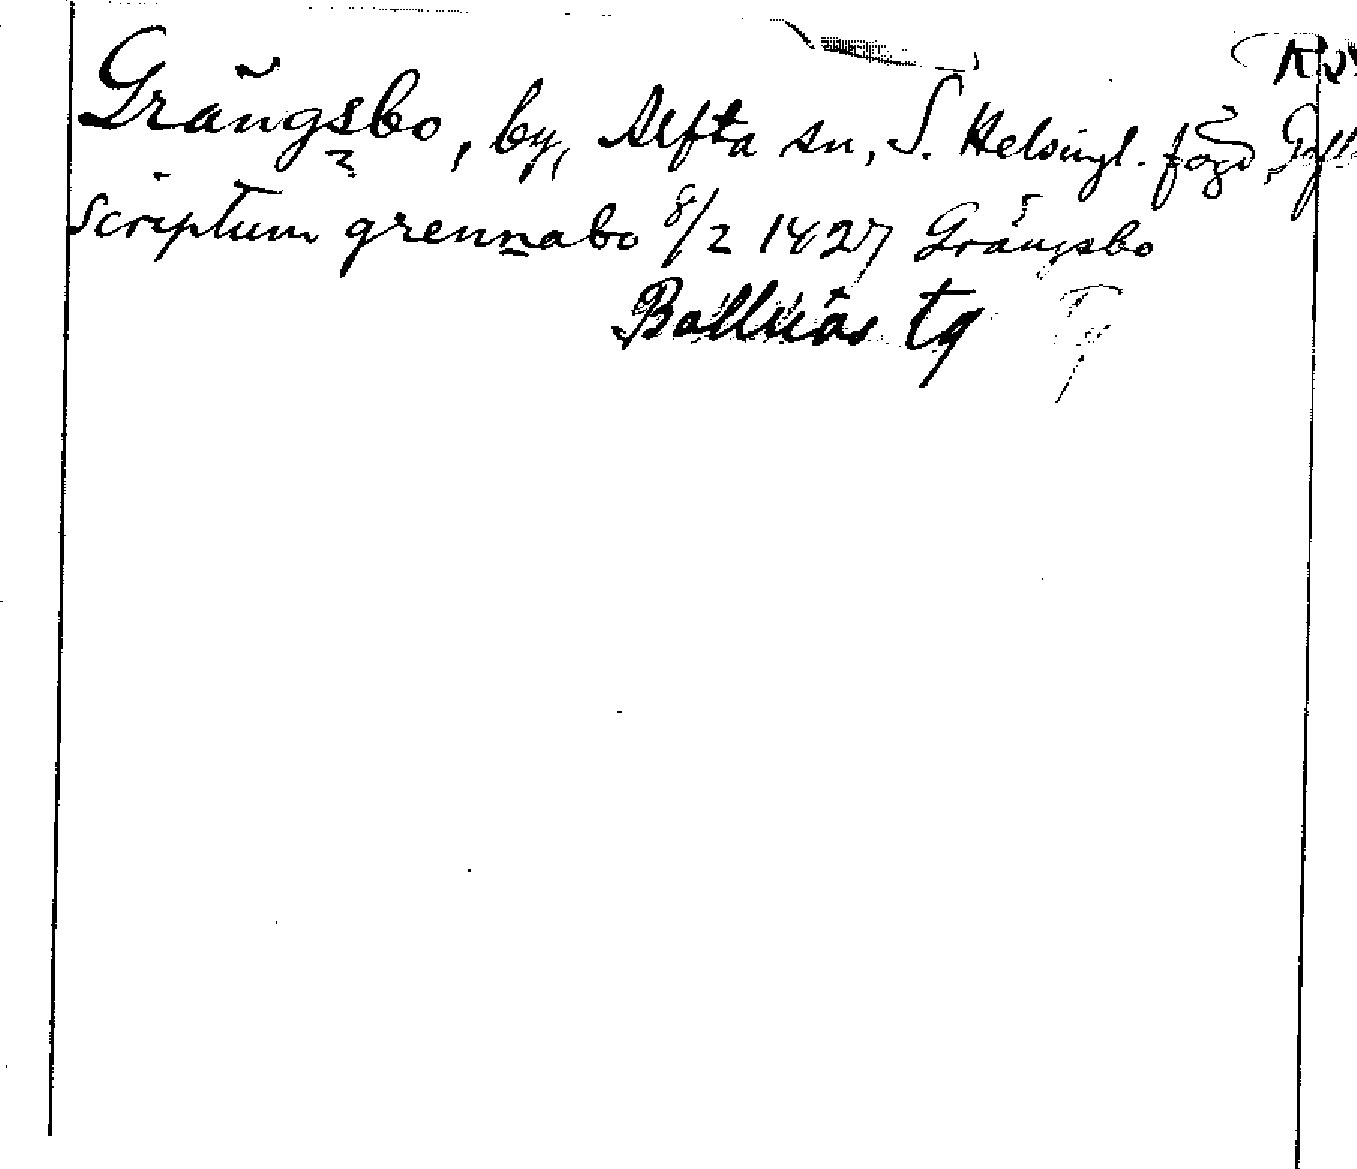 Grängsbo, by, Alfta sn, S. Helsingl. fögd,
scriptum grennabo 8/2 1427 Grängsbo
Bollnäs tg